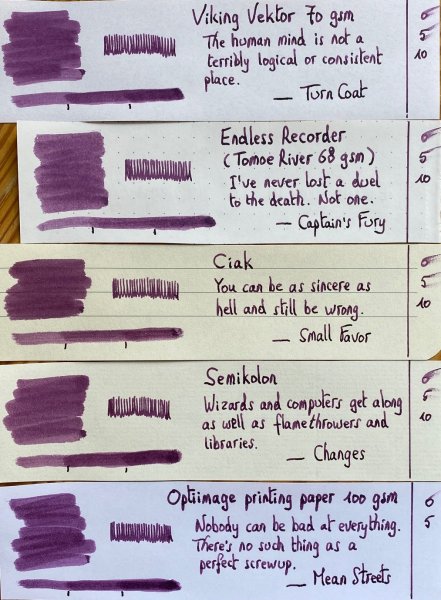 Viking Vektor 70 gsm
The human mind is not a
terribly logical or consistent
place.
— Turn Coat
0
5
10
Endless Recorder
(Tomoe River 68 gsm)
I've never lost a duel
to the death. Not one.
— Captain's Fury
0
5
10
Ciak
You can be as sincere as
hell and still be wrong.
— Small Favor
0
5
10
Semikolon
Wizards and computers get along
as well as flamethrowers and
libraries.
— Changes
0
5
10
Optiimage printing paper 100 gsm
Nobody can be bad at everything.
There's no such thing as a
perfect screwup.
— Mean Streets
0
5